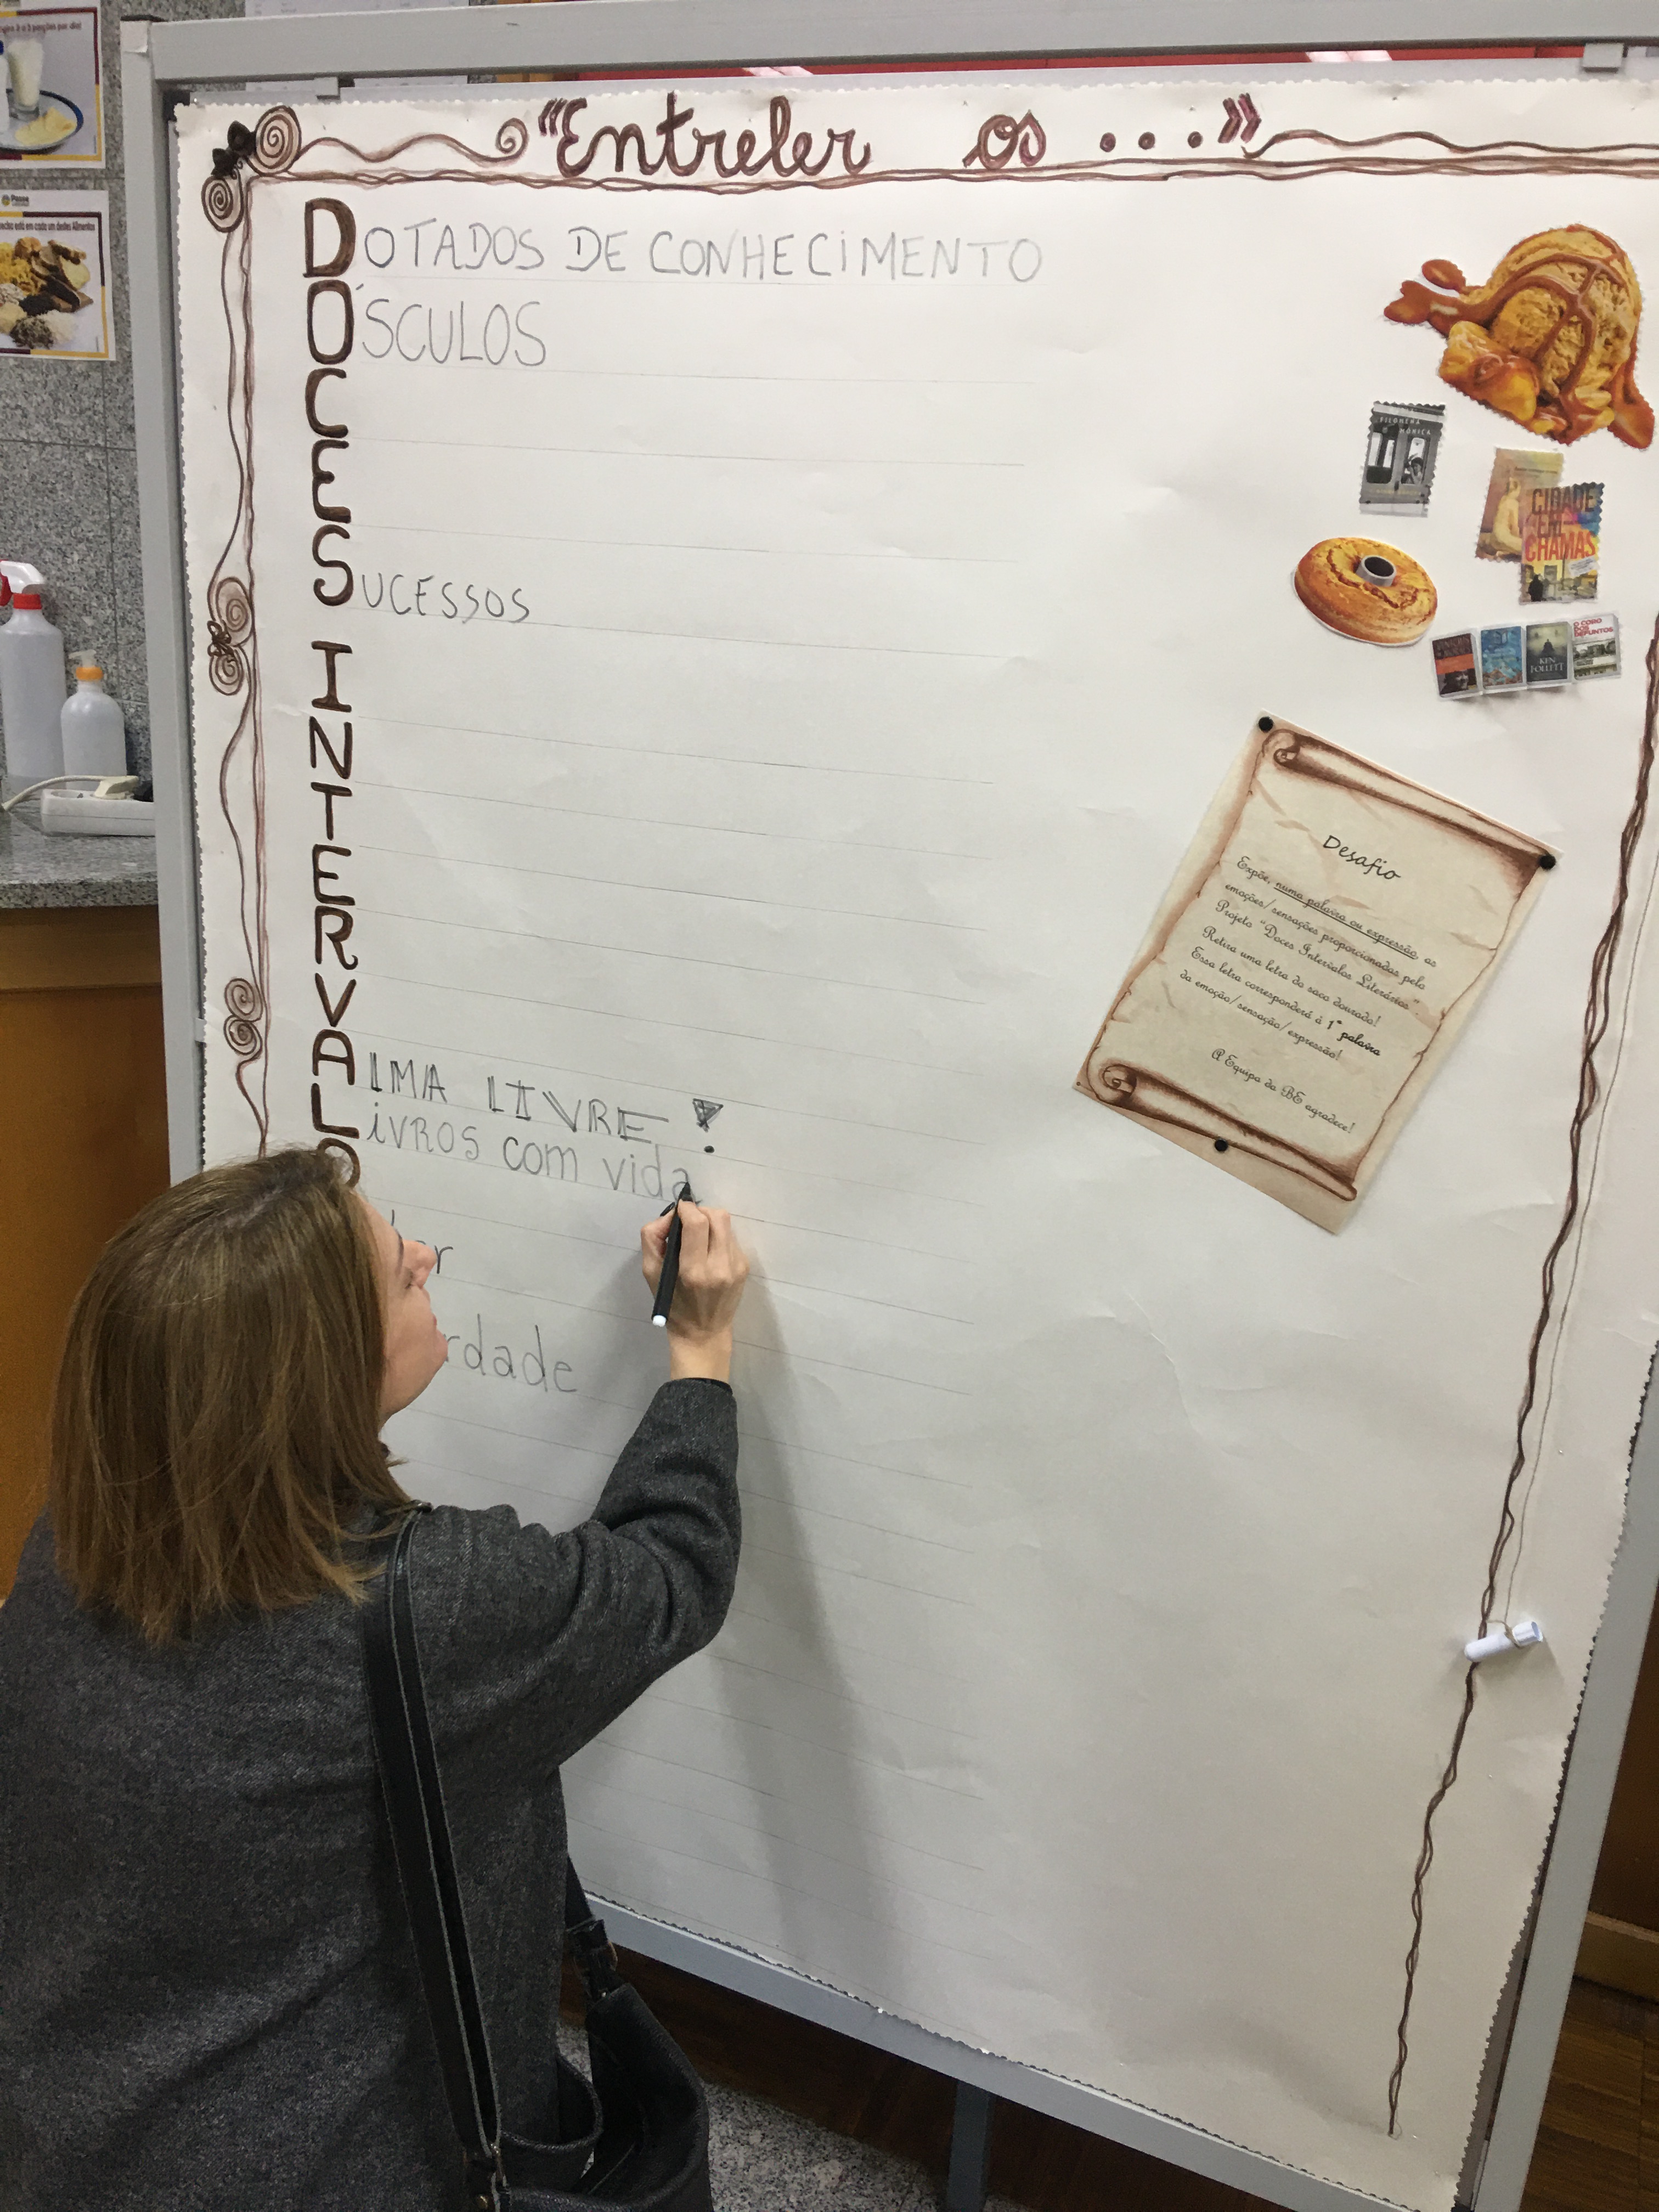 "Entreler os ..."
DOTADOS DE CONHECIMENTO
ÓSCULOS
C
E
SUCESSOS
I
N
T
E
R
V
ALMA LIVRE!
LiVROS com vida
rdade
FILOMENA
MÓNICA
CIDADE
EM
CHAMAS
KEN
FOLLETT
O CORO
DOS
DEFUNTOS
Desafio
Expõe, numa palavra ou expressão, as
emoções/sensações proporcionadas pelo
Projeto "Doces Intervalos Literários".
Retira uma letra do saco dourado!
Essa letra corresponderá à 1ª palavra
da emoção/sensação/expressão!
A Equipa da BE agradece!